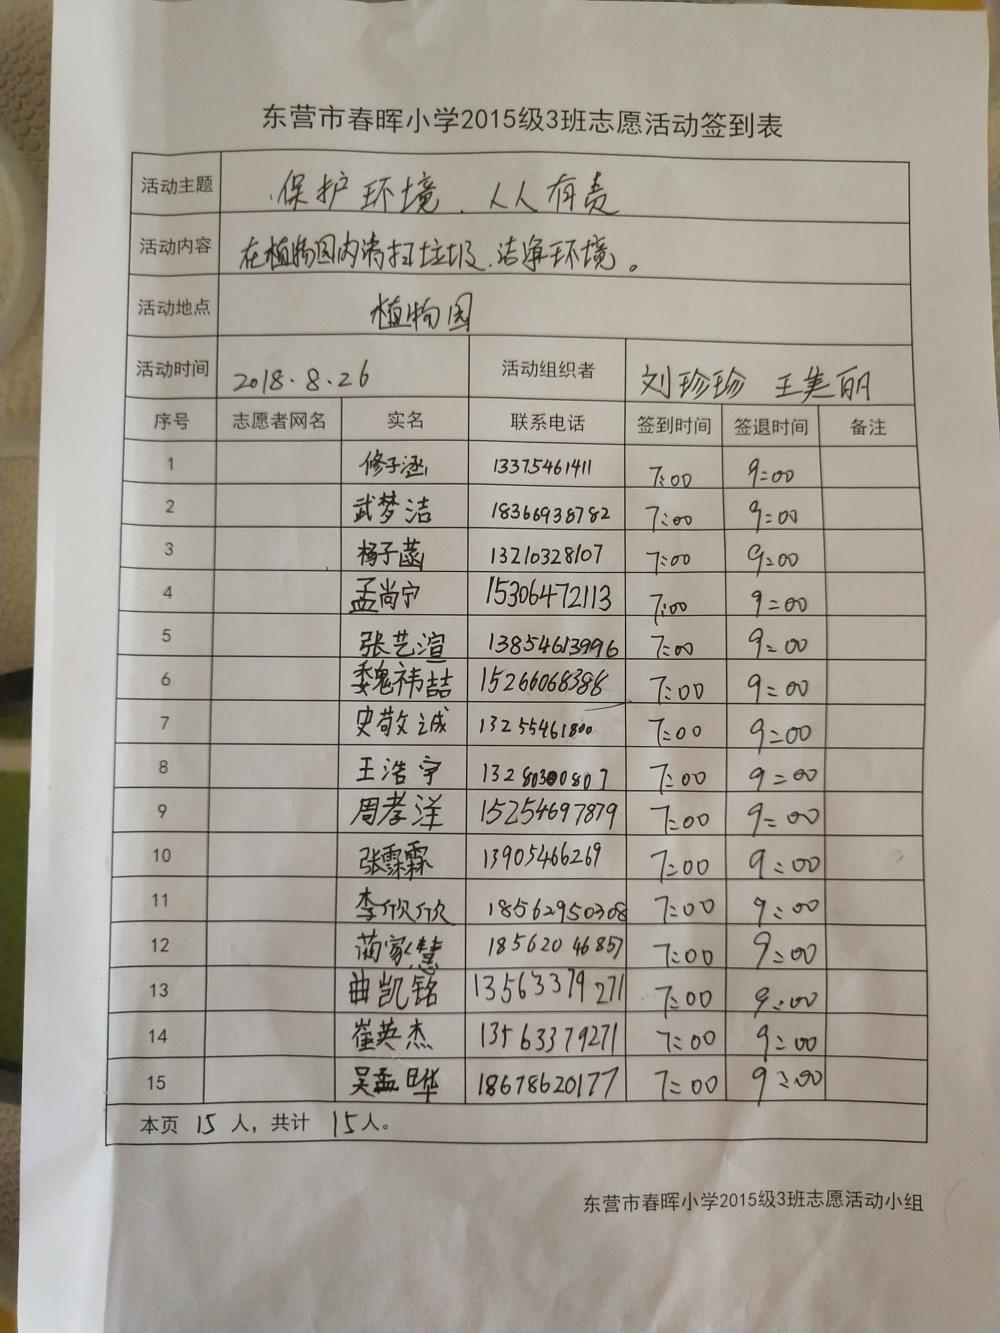 东营市春晖小学2015级3班志愿活动签到表
活动主题 保护环境、人人有责
活动内容 在植物园内清扫垃圾、洁净环境。
活动地点 植物园
活动时间 2018.8.26 活动组织者 刘珍珍 王美丽
序号 志愿者网名 实名 联系电话 签到时间 签退时间 备注
1 修子涵 13375461411 7:00 9:00
2 武梦洁 18366938782 7:00 9:00
3 杨子菡 13210328107 7:00 9:00
4 孟尚宁 15306472113 7:00 9:00
5 张艺渲 13854613996 7:00 9:00
6 魏祎喆 15266068388 7:00 9:00
7 史敬诚 13255461800 7:00 9:00
8 王浩宇 13280300807 7:00 9:00
9 周孝洋 15254697879 7:00 9:00
10 张霖霖 13905466269 7:00 9:00
11 李欣欣 18562950308 7:00 9:00
12 蔺家慧 18562046857 7:00 9:00
13 曲凯铭 13563379271 7:00 9:00
14 崔英杰 13563379271 7:00 9:00
15 吴孟晔 18678620177 7:00 9:00
本页 15 人，共计 15人。
东营市春晖小学2015级3班志愿活动小组